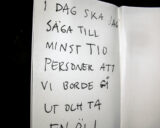 I DAG SKA JAG
SÄGA TILL
MINST TIO
PERSONER ATT
VI BORDE GÅ
UT OCH TA
EN ÖL